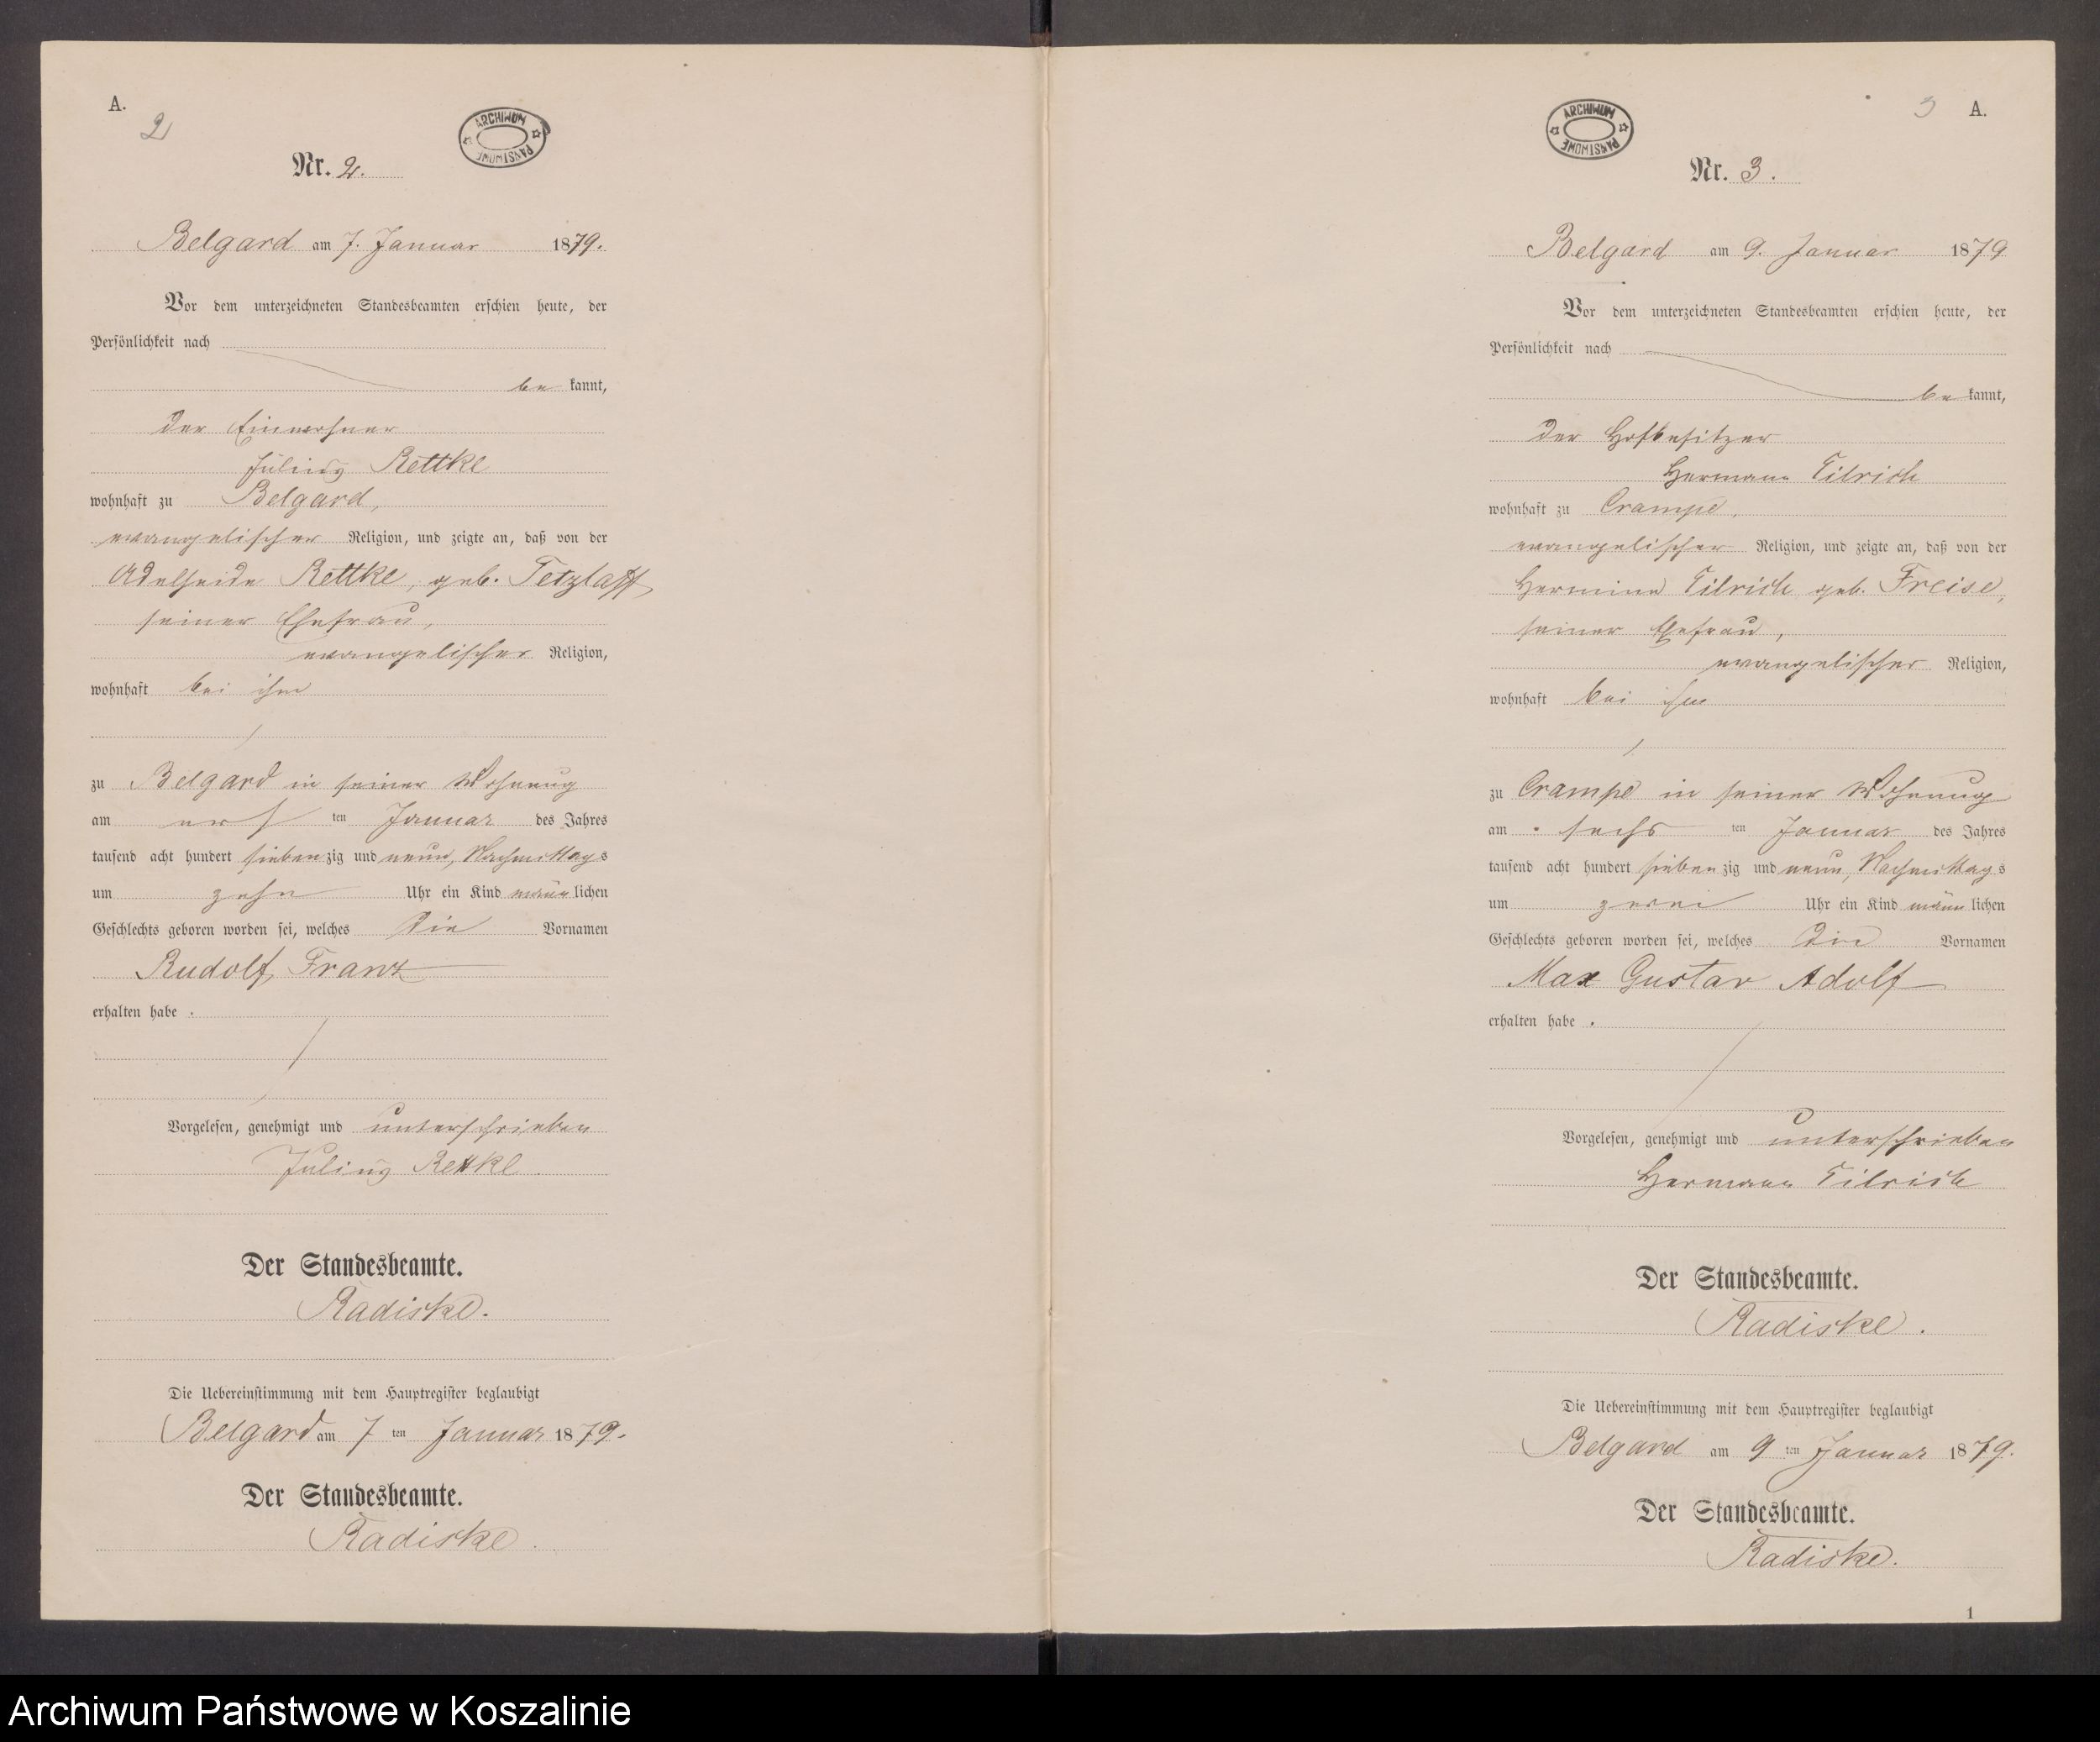 A.
2
ARCHIWUM PAŃSTWOWE
Nr. 2.
Belgard am 7. Januar 1879.
Vor dem unterzeichneten Standesbeamten erschien heute, der
Persönlichkeit nach
be kannt,
der Einwohner
Julius Rettke
wohnhaft zu Belgard,
evangelischer Religion, und zeigte an, daß von der
Adelheide Rettke, geb. Tetzlaff,
seiner Ehefrau,
evangelischer Religion,
wohnhaft bei ihm
zu Belgard in seiner Wohnung
am ersten Januar des Jahres
tausend acht hundert siebenzig und neun, Nachmittags
um zehn Uhr ein Kind männlichen
Geschlechts geboren worden sei, welches die Vornamen
Rudolf, Franz
erhalten habe .
Vorgelesen, genehmigt und unterschrieben
Julius Rettke
Der Standesbeamte.
Radiske.
Die Uebereinstimmung mit dem Hauptregister beglaubigt
Belgard am 7 ten Januar 1879.
Der Standesbeamte.
Radiske.
3 A.
ARCHIWUM PAŃSTWOWE
Nr. 3.
Belgard am 9. Januar 1879
Vor dem unterzeichneten Standesbeamten erschien heute, der
Persönlichkeit nach
be kannt,
der Hofbesitzer
Hermann
wohnhaft zu Crampe,
evangelischer Religion, und zeigte an, daß von der
Hermine geb. Freise,
seiner Ehefrau,
evangelischer Religion,
wohnhaft bei ihm
zu Crampe in seiner Wohnung
am sechsten Januar des Jahres
tausend acht hundert siebenzig und neun, Nachmittags
um zwei Uhr ein Kind männlichen
Geschlechts geboren worden sei, welches die Vornamen
Max Gustav Adolf
erhalten habe .
Vorgelesen, genehmigt und unterschrieben
Hermann
Der Standesbeamte.
Radiske.
Die Uebereinstimmung mit dem Hauptregister beglaubigt
Belgard am 9 ten Januar 1879.
Der Standesbeamte.
Radiske.
1
Archiwum Państwowe w Koszalinie